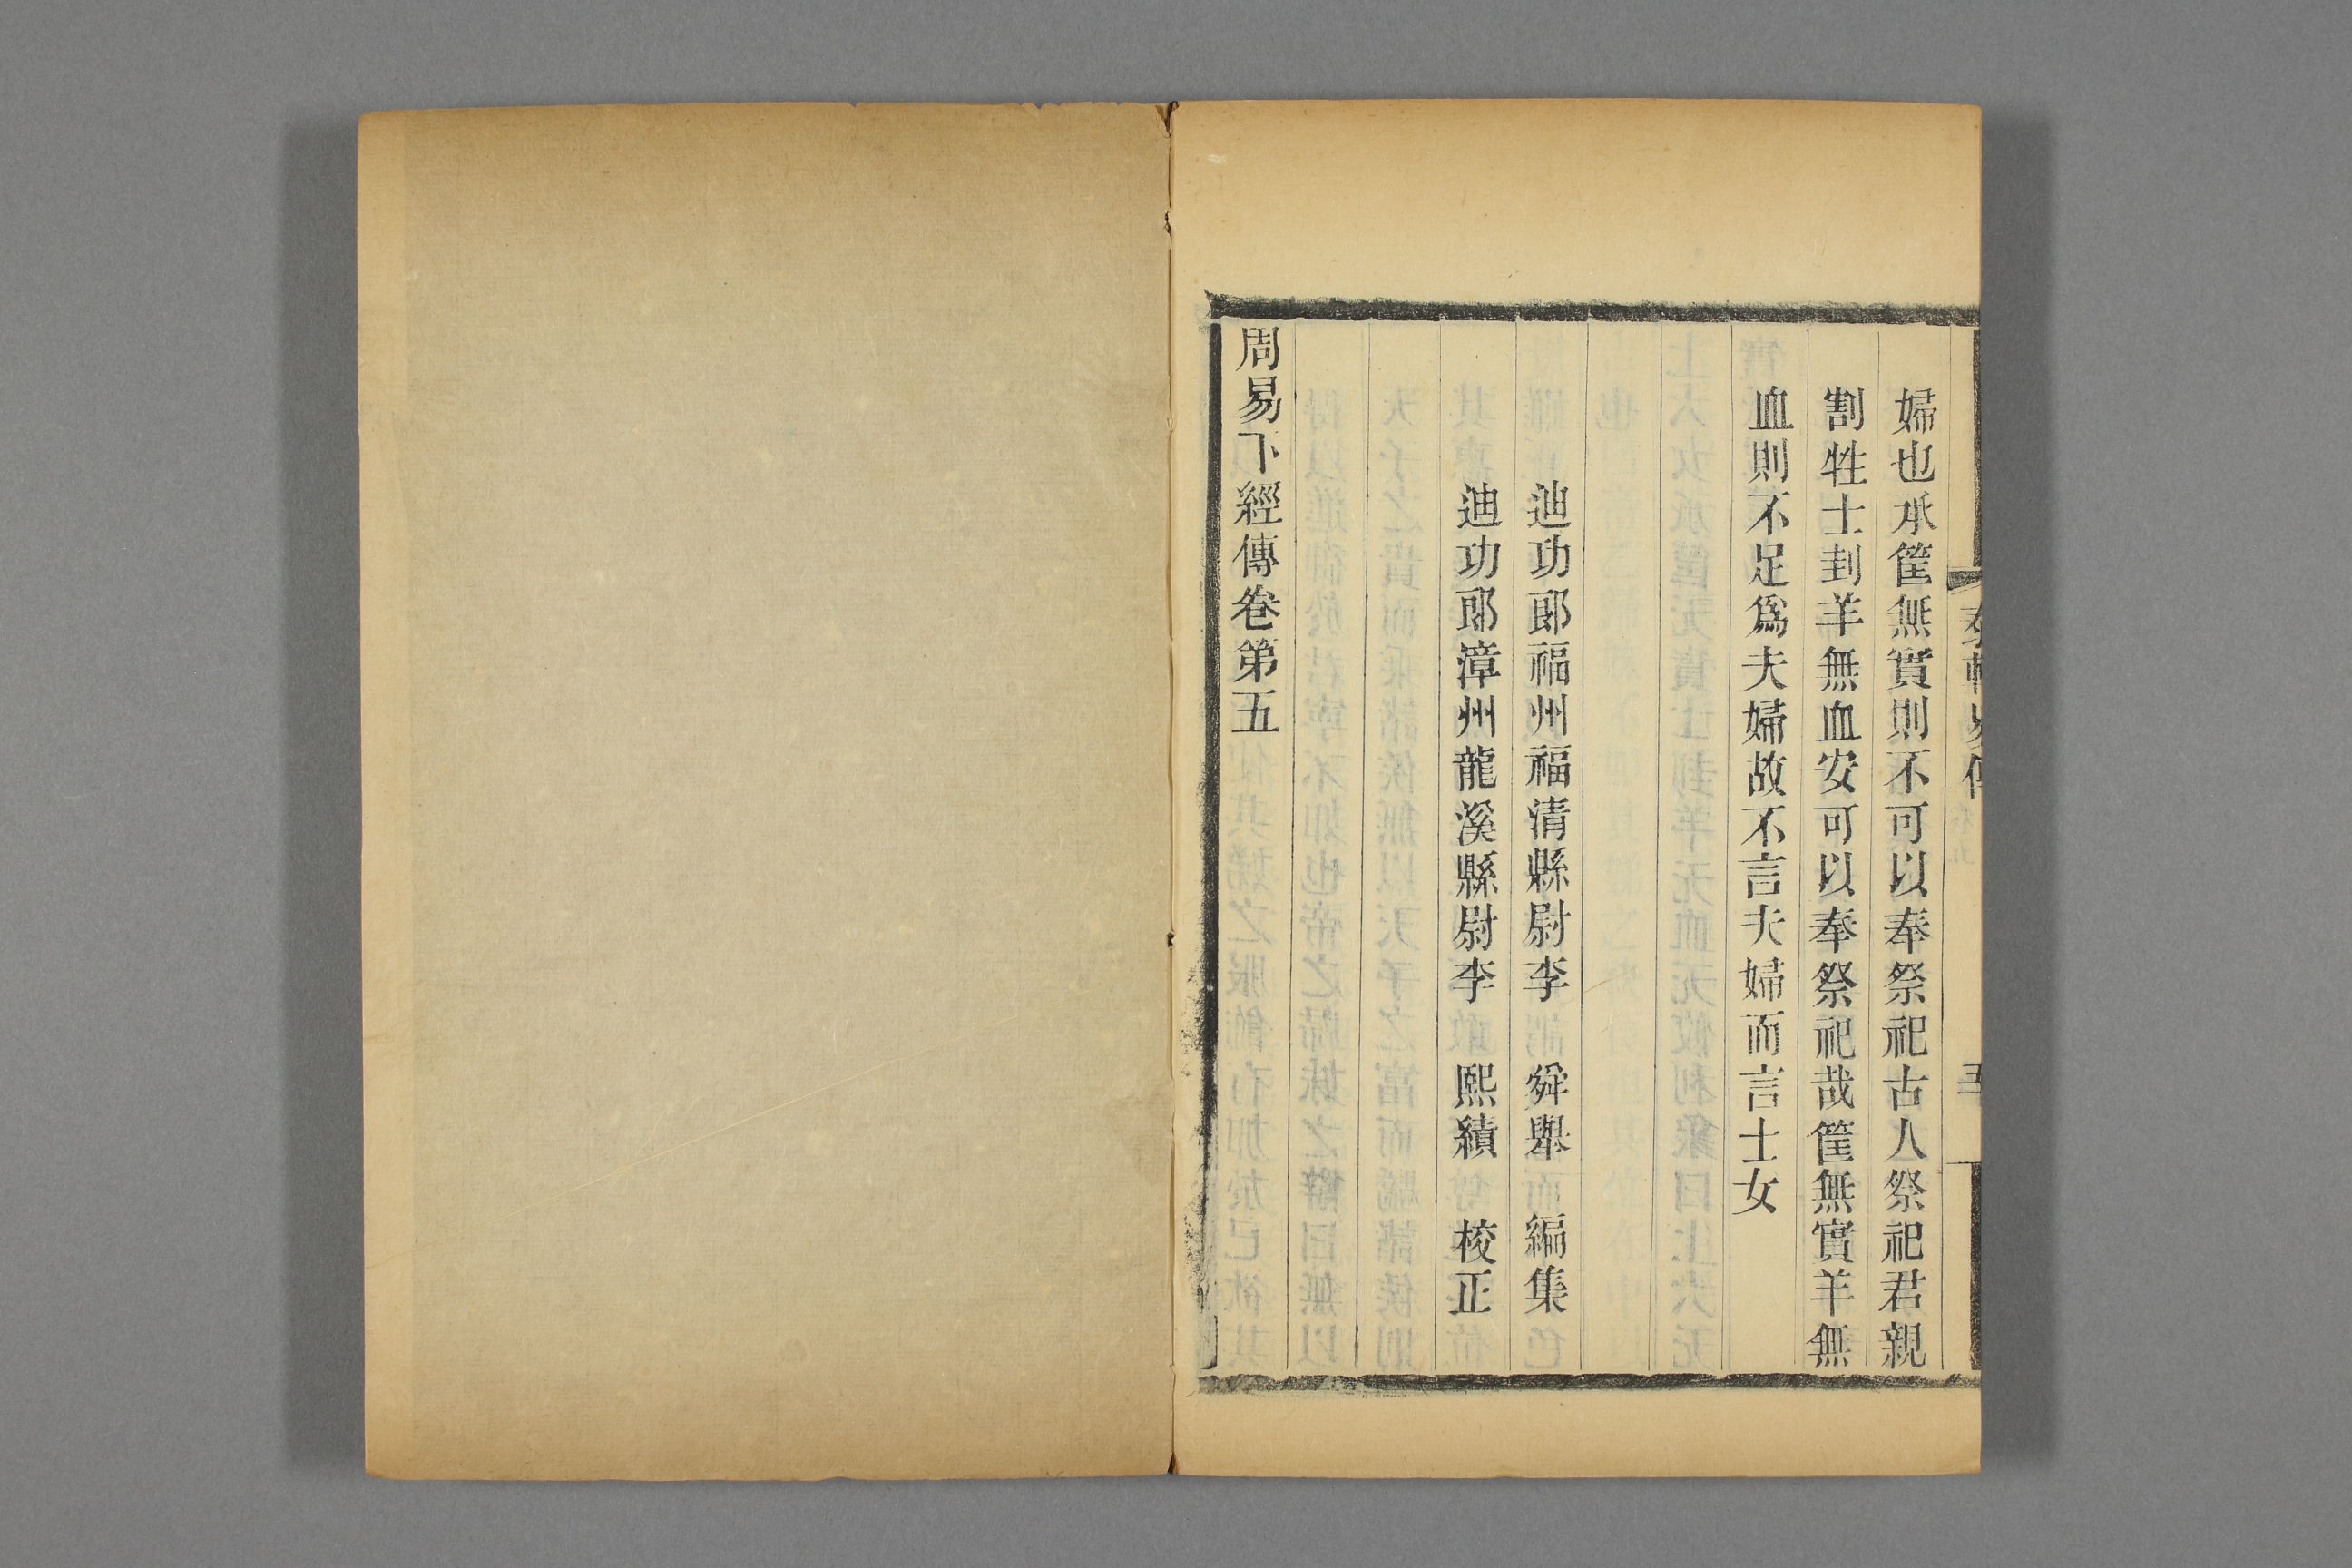 婦也承筐無實則不可以奉祭祀古人祭祀君親
割牲士刲羊無血安可以奉祭祀哉筐無實羊無
血則不足爲夫婦故不言夫婦而言士女
迪功郎福州福清縣尉李　舜舉　編集
迪功郎漳州龍溪縣尉李　熙績　校正
周易下經傳卷第五